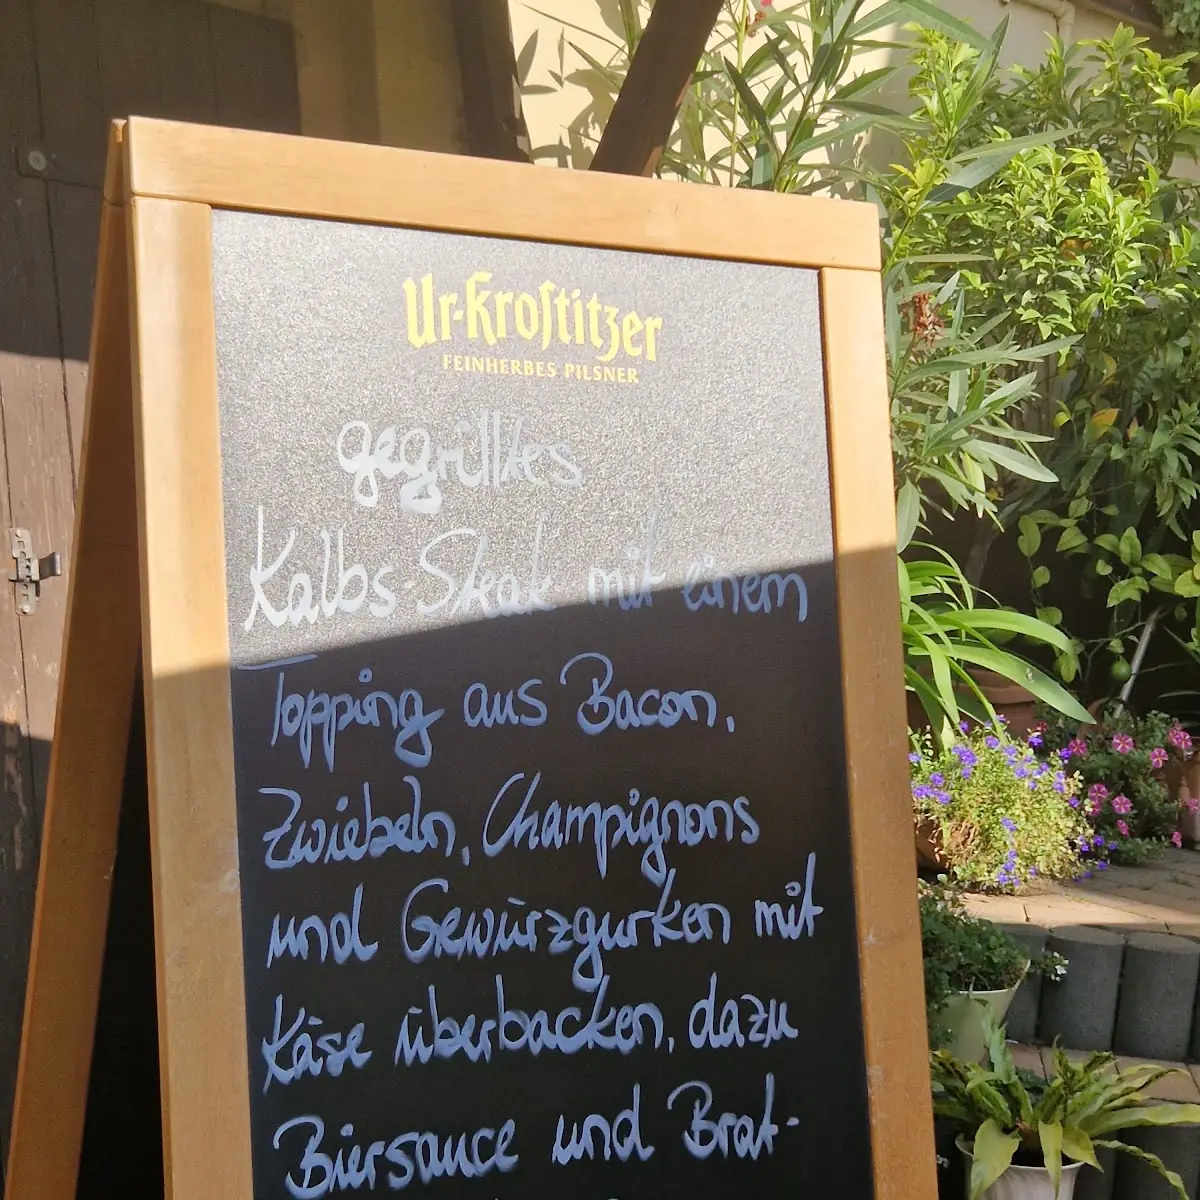 Ur-Kroſtitzer
FEINHERBES PILSNER
gegrilltes
Kalbs-Steak mit einem
Topping aus Bacon,
Zwiebeln, Champignons
und Gewürzgurken mit
Käse überbacken, dazu
Biersauce und Brat-